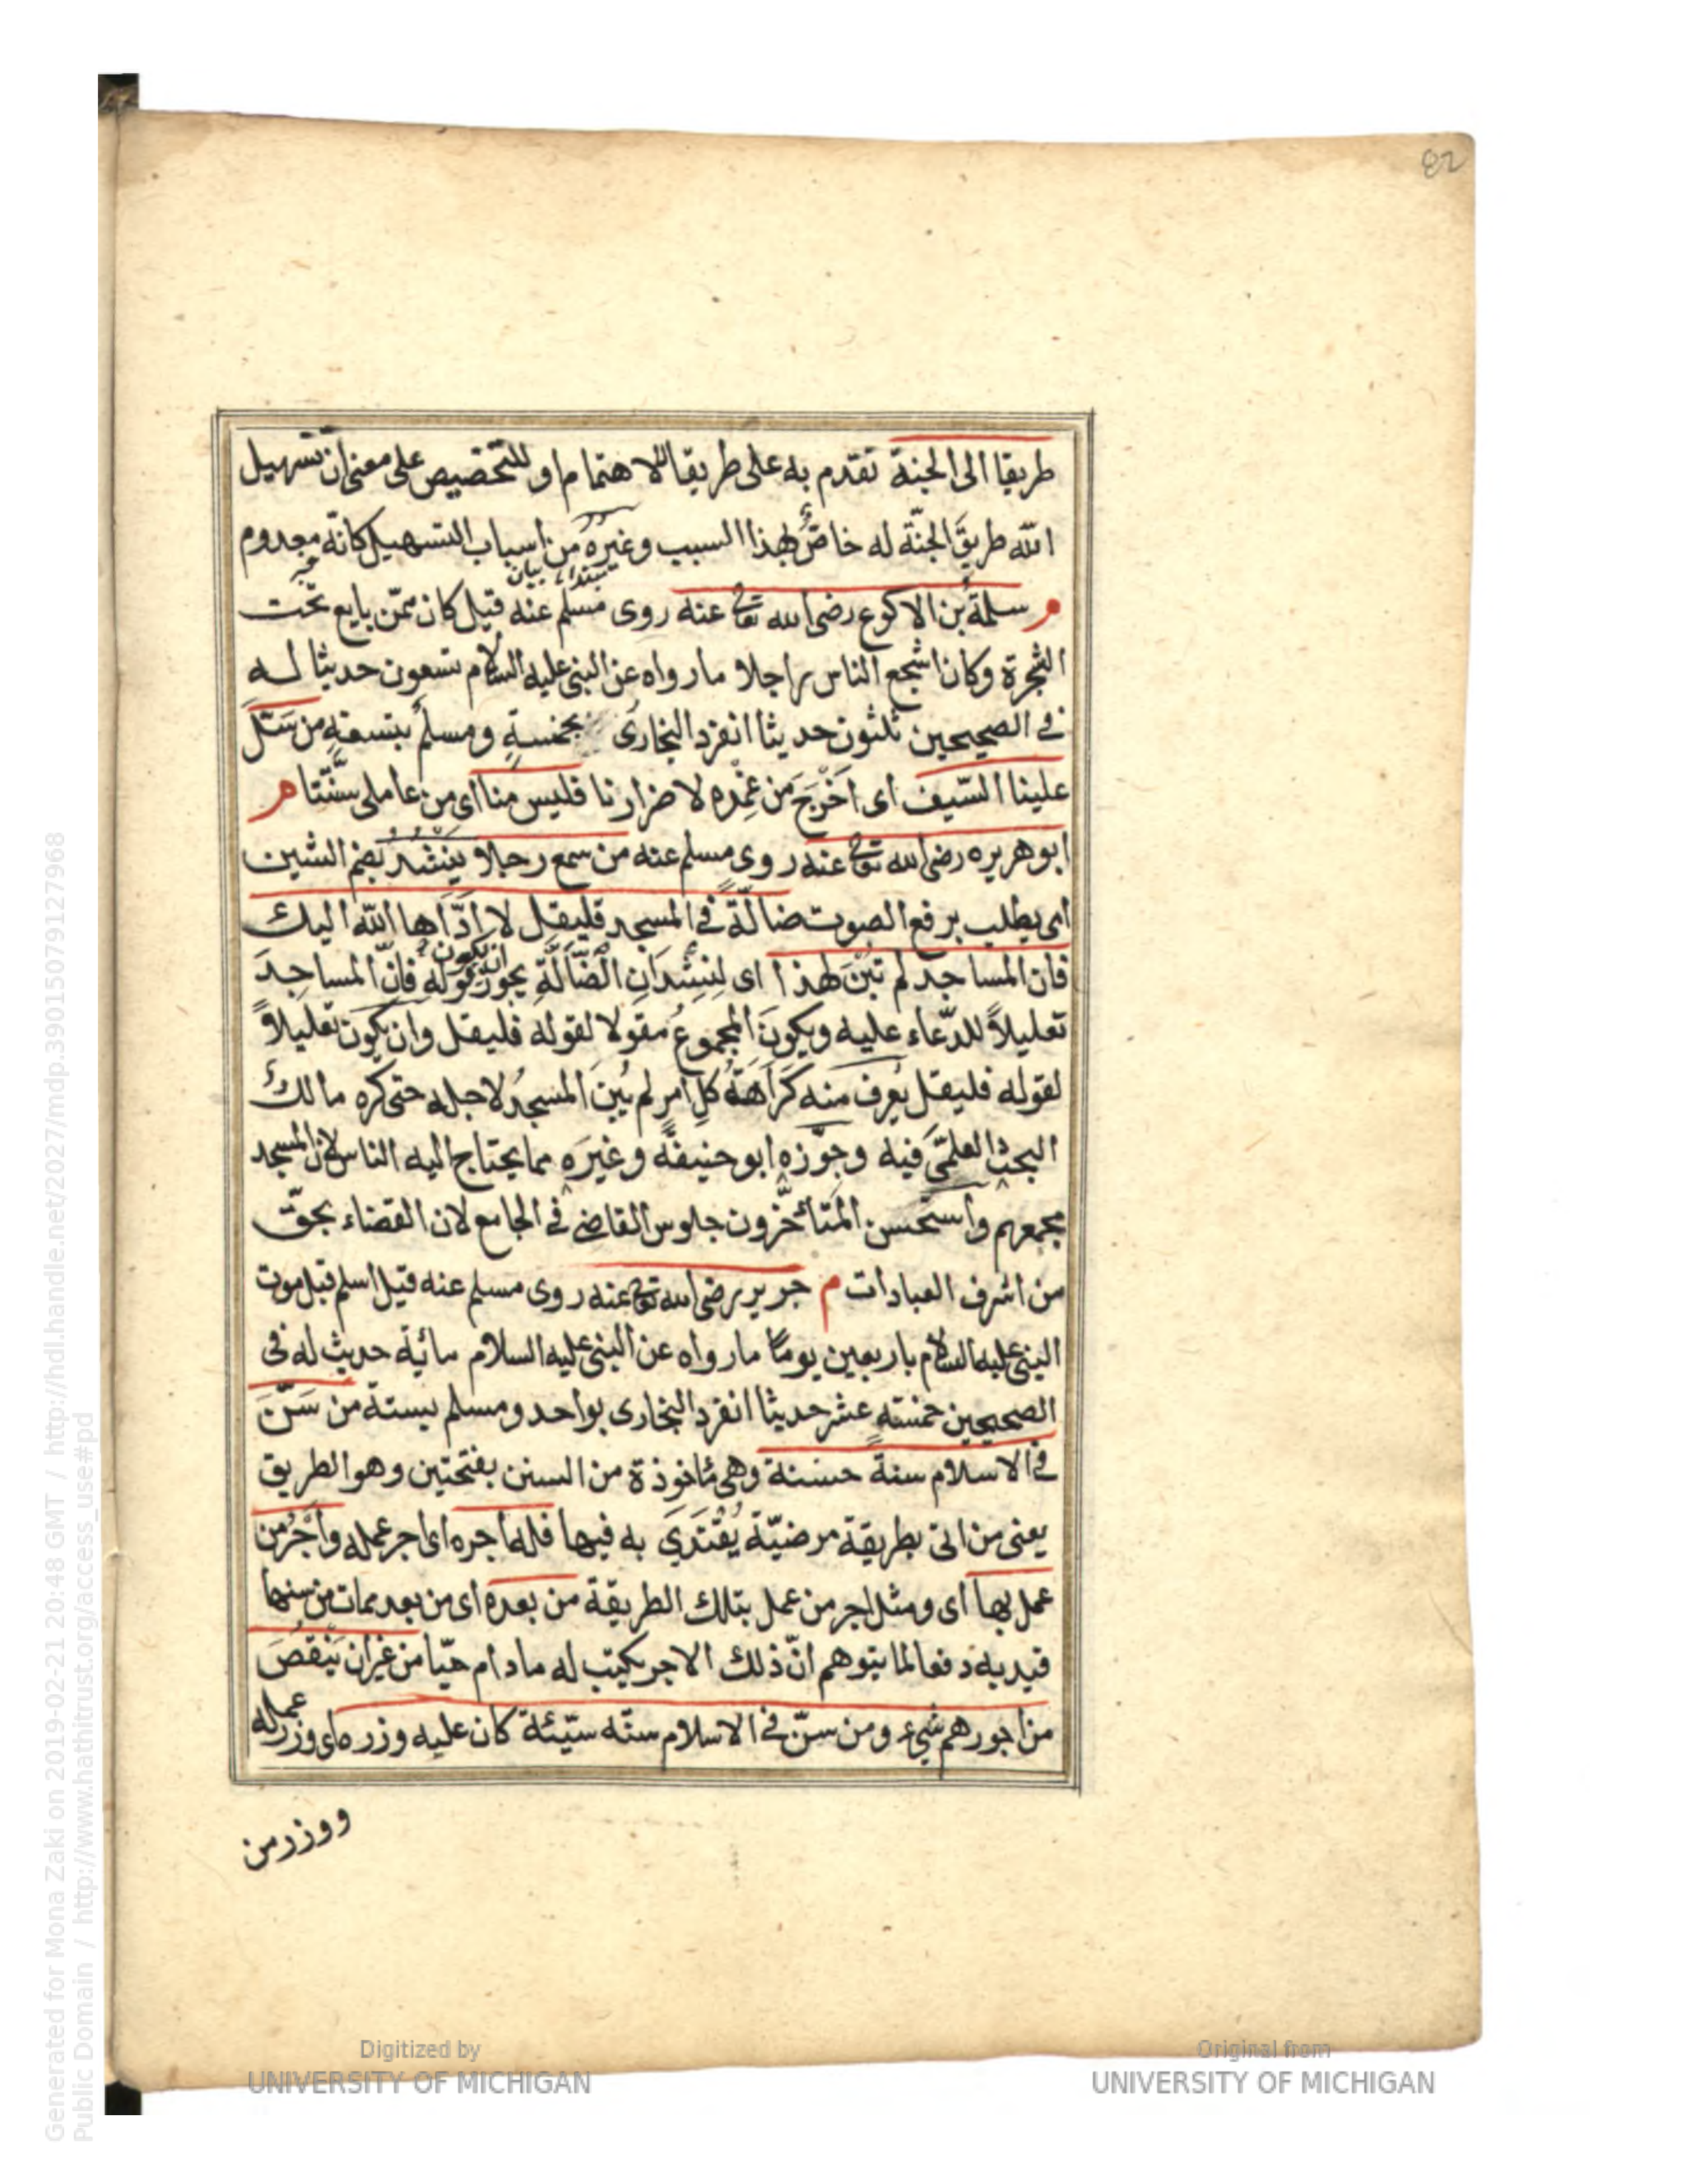 82
طريقا الى الجنة تقدم به على طريقا للاهتمام او للتخصيص على معنى ان تسهيل
الله طريقَ الجنّة له خاصٌّ لهذا السبب وغيرُه من اسباب التسهيل كانّه معدوم
مبتداء بيان خبر
م سلمةُ بن الاكوع رضى الله تعالى عنه روى مسلم عنه قيل كان ممّن بايع تحت
الشجرة وكان اشجع الناس راجلا ما رواه عن النبى عليه السلام تسعون حديثا له
فى الصحيحين ثلثون حديثا انفرد البخارى بخمسةٍ ومسلم بتسعةٍ من سَلَّ
علينا السّيف اى اَخْرَجَ من غِمْدِه لاضرارنا فليس منا اى من عاملى سنّتنا م
ابو هريره رضى الله تعالى عنه روى مسلم عنه من سمع رجلا يَنْشُدُ بضم الشين
اى يطلب برفع الصوت ضالّةً فى المسجد فليقل لا ادّاها الله اليك
فان المساجد لم تُبْنَ لهذا اى لِنِشْدَانِ الضّالَّةِ يجوز ان يكون قوله فانّ المساجدَ
تعليلاً للدّعاء عليه ويكونَ المجموعُ مقولا لقوله فليقل وان يكون تعليلاً
لقوله فليقل يُعرف منه كَرَاهَةُ كلِّ امرٍ لم يُبنَ المسجدُ لاجله حتى كره مالكٌ
البحثَ العلمّى فيه وجوّزه ابو حنيفة وغيرَه مما يحتاج اليه الناس لان المسجد
مجمعهم واستحسن المتأخّرون جلوس القاضى فى الجامع لان القضاء بحقّ
من اشرف العبادات م جرير رضى الله تعالى عنه روى مسلم عنه قيل اسلم قبل موت
النبى عليه السلام باربعين يومًا ما رواه عن النبى عليه السلام مائة حديث له فى
الصحيحين خمسة عشر حديثا انفرد البخارى بواحد ومسلم بستة من سَنَّ
فى الاسلام سنةً حسنة وهى مأخوذة من السنن بفتحتين وهو الطريق
يعنى من اتى بطريقة مرضيّة يُقْتَدَى به فيها فله اجره اى اجر عمله واَجْرُ من
عمل بها اى ومثل اجر من عمل بتلك الطريقة من بعده اى من بعد ممات من سنها
قيد به دفعا لما يتوهم انّ ذلك الاجر يكتب له ما دام حيّا من غير ان يَنْقُصَ
من اجورهم شىء ومن سنّ فى الاسلام سنّه سيّئة كان عليه وزره اى وزر عمله
ووزر من
Generated for Mona Zaki on 2019-02-21 20:48 GMT / http://hdl.handle.net/2027/mdp.39015079127968
Public Domain / http://www.hathitrust.org/access_use#pd
Digitized by
UNIVERSITY OF MICHIGAN
Original from
UNIVERSITY OF MICHIGAN